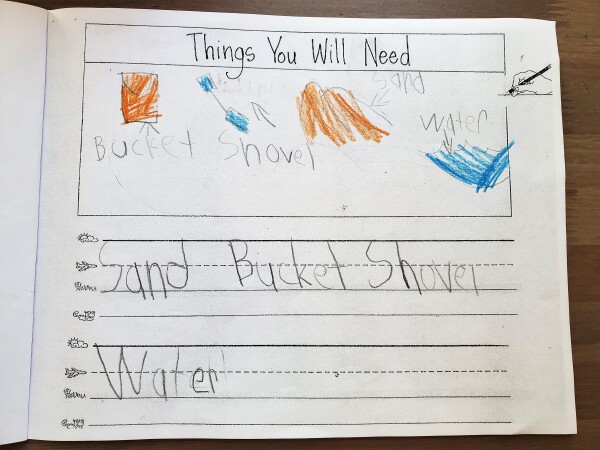 Things You Will Need
Sand
Water
Bucket Shovel
Sand Bucket Shovel
Water